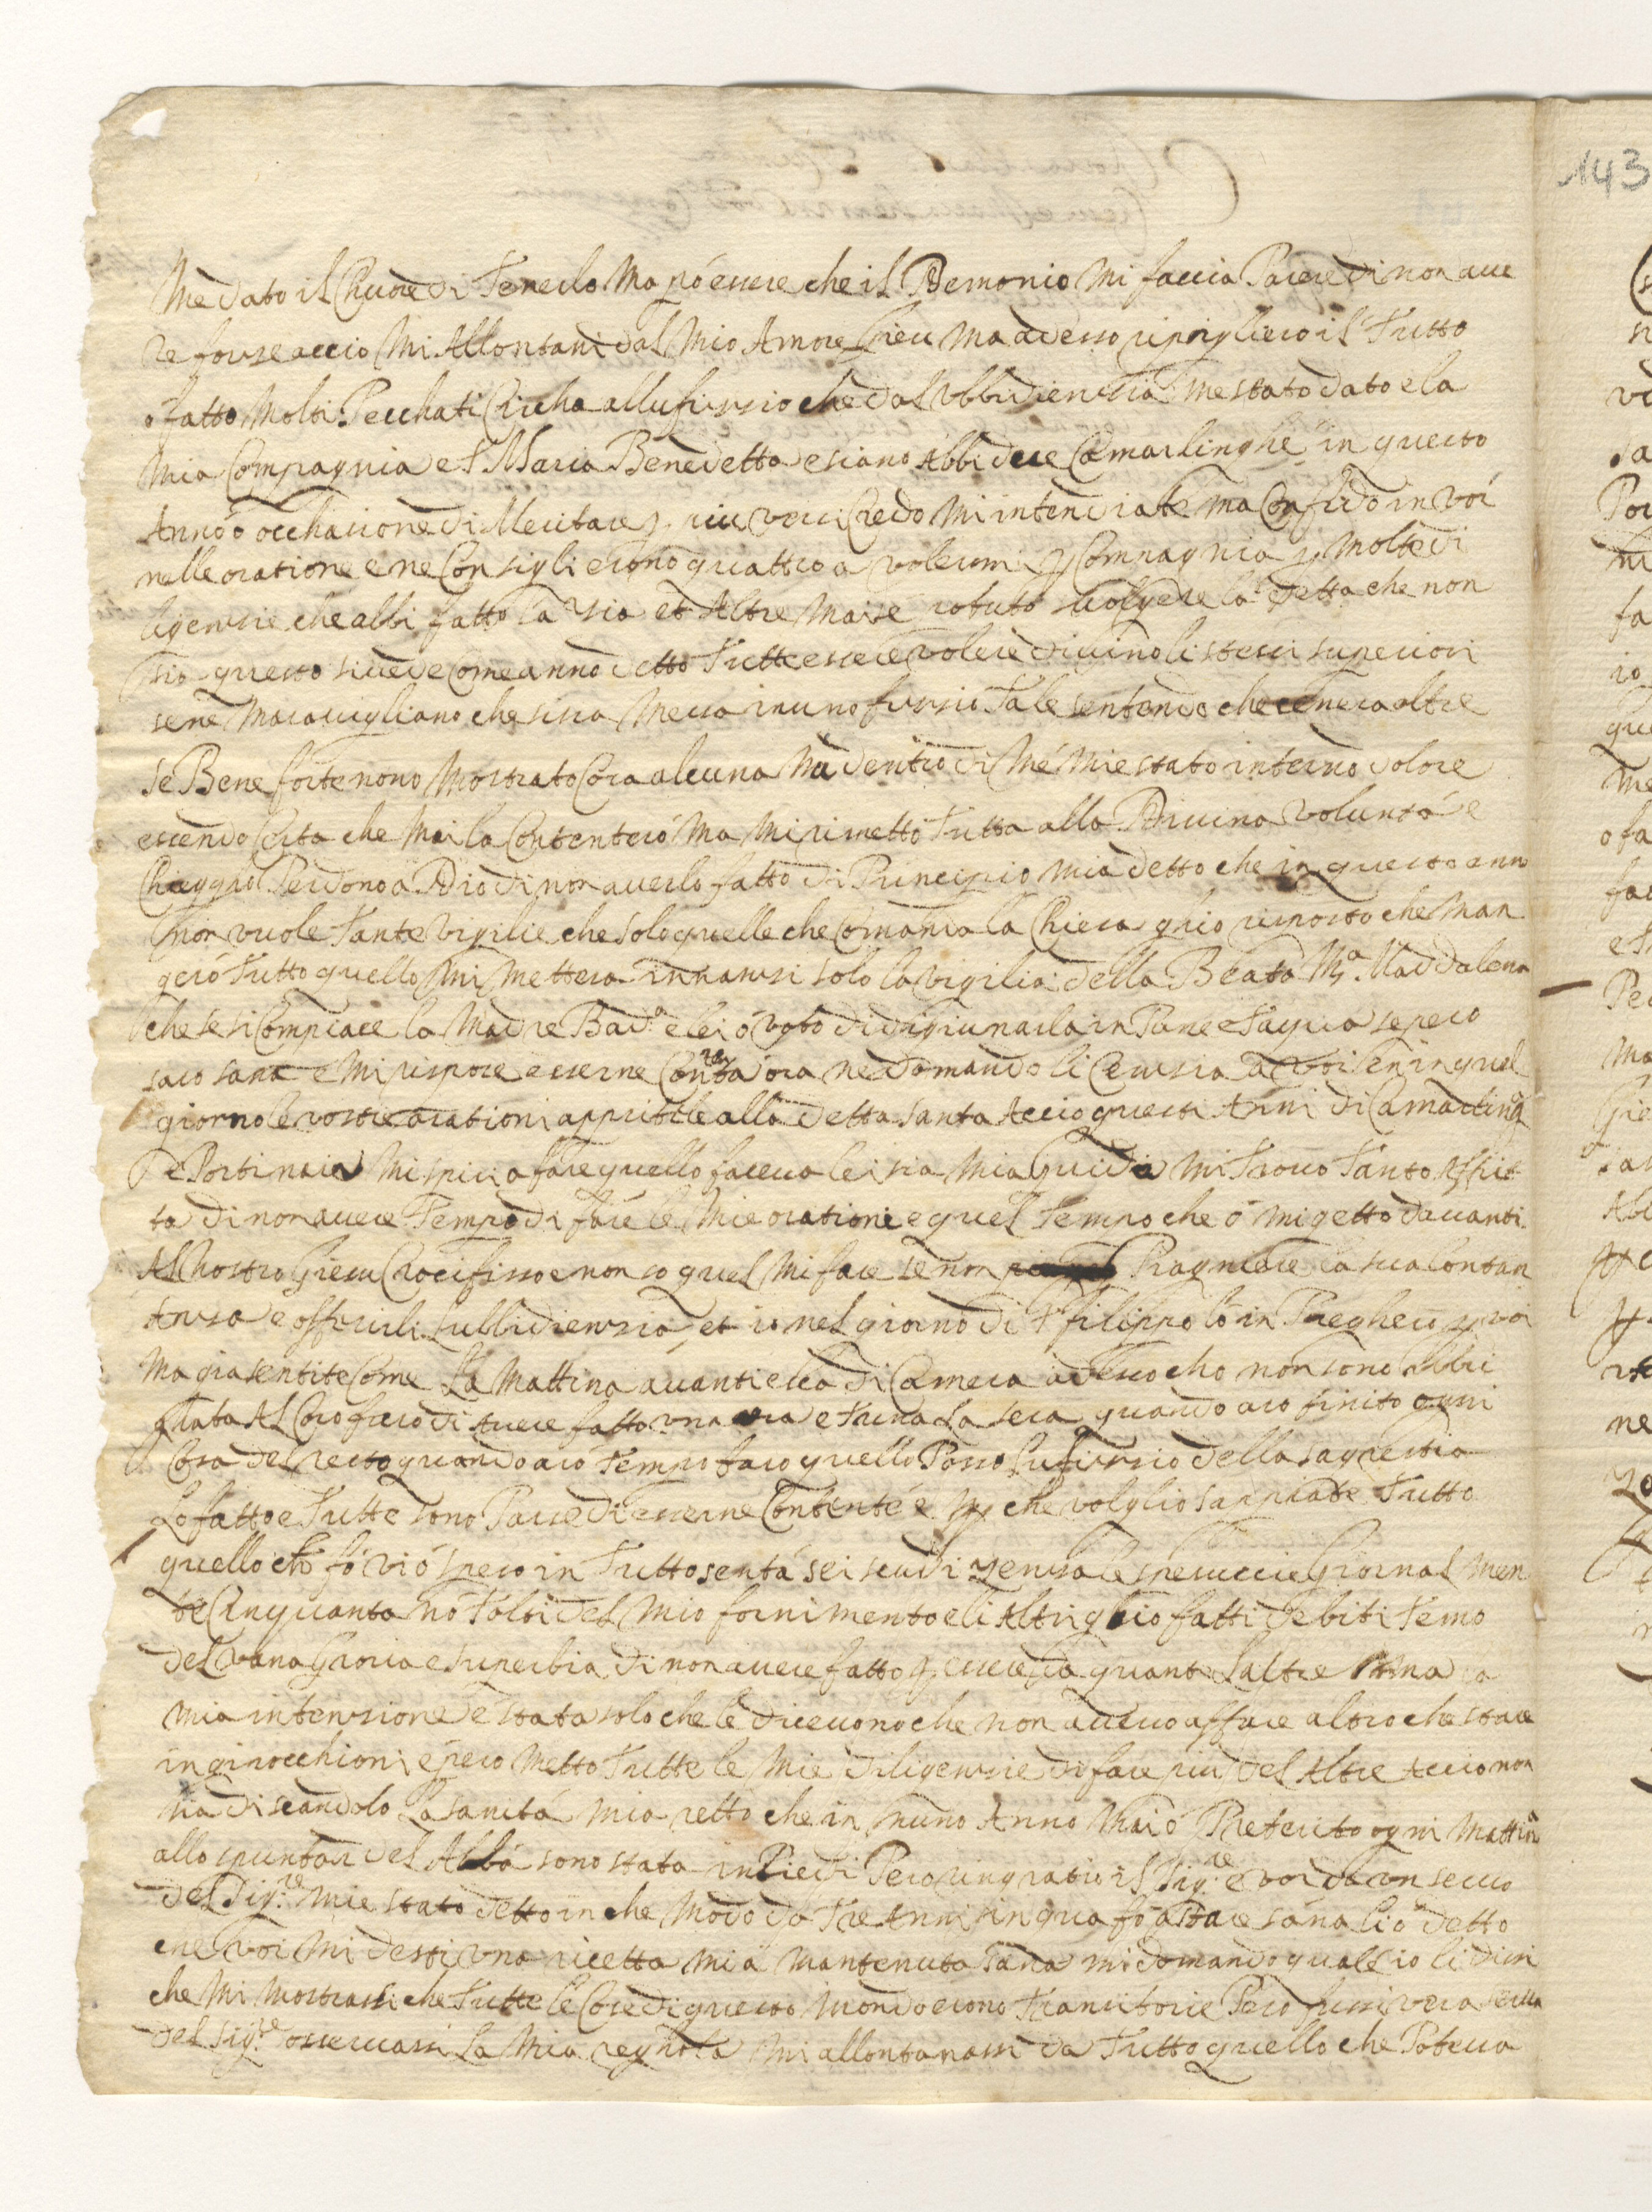 143
Me dato il Chuore di Tenerlo Ma pó essere che il Demonio Mi faccia Parere di non ave
re forse accio Mi Allontani dal Mio Amore Giesu Ma adesso ripigliero il Tutto
o fatto Molti Pecchati Circha all ufisio che dal Ubbidiensia me stato dato e la
Mia Compagnia e S. Maria Benedetta e siano Abbidere Camarlinghe in questo
Anno ó occhasione di Meritare p. Credo Mi intendiate ma Confido in Voi
nelle oratione e ne Consigli erono quattro a volermi p Compagnia p Molte di
ligensie che abbi fatto la Sia et Altre Mai se potuto svolgere la detta che non
sia questo si vede Come anno detto Tutte essere volere divino li stessi superiori
sene Maravigliano che sisia Messa in uno fusio Tale sentendo che cenera altre
se Bene forte nono Mostrato Cosa alcuna Ma dentro di Mé Mi e stato interno dolore
essendo Certa che Mai la Contenteró Ma Mi rimetto Tutta alla Divina Voluntá e
Cheggio Perdono a Dio di non averlo fatto di Principio Mia detto che in questo anno
non vuole Tante Vigilie che solo quelle che Comanda la Chiesa glio risposto che Man
geró Tutto quello Mi Mettera innansi solo la vigilia della Beata Ma. Maddalena
che se si Compiace la Madre Bad.a e lei ó voto di digiunarla in Pane e Aqua se pero
saro sana e Mi rispose esserne Contenta ora ne domando li Censia a voi en in quel
giorno le vostre orationi apprisble alla detta Santa Accio questi Anni di Camarling
e Portinaia Mi spiri a fare quello faceva lei sia Mia Guida Mi Trovo Tanto Afflit
ta di non avere Tempo di fare le Mie oratione e quel Tempo che ó mi getto davanti
Al Nostro Giesu Crocifisso e non so quel Mi fare se non Piagniere la sua lontan
ansa e offrirli l ubbidiensia et io nel giorno di S filippo lo in Pregheró p voi
Ma gia sentite Come La Mattina avanti esca di Camera adesso cho non sono Abbri
gata Al Coro fuero di Avere fatto una ora e Tuna La sera quando aro finito ogni
Cosa del resto quando aró Tempo faro quello Posso Lufisio della sagrestia
Lo fatto e Tutte sono Parse di esserne Contente é p che volglio sappiate Tutto
quello chó fó vió speso in Tutto senta sei scudi sensa le spesuccie Giornal men
te Cinquanta nó Tolti del Mio fornimento e li Altri glio fatti debiti Temo
del vana Groria e superbia di non avere fatto p essere da quant laltre Ma la
mia intensione é stata solo che le dicevono che non avevo affare altro che stare
in ginocchioni e pero Metto Tutte le Mie diligensie di fare piu del Altre Accio non
sia di scandolo La sanitá Mia retto che in nuno Anno Mai ó Preterito ogni Mattina
allo spuntar del Albá sono stata in Piedi Pero ringratio il Sig.re e voi da un servo
del Sig.re Mi e stato detto in che Modo da Tre Anni in qua fó a stare sana lió detto
che voi Mi desti una ricetta Mi á Mantenuta sana mi domandó qual e io li dissi
che Mi Mostrassi che Tutte le Cose di questo Mondo erono Transitorie Pero fussi vera serva
del Sig.re osservassi La Mia reghola Mi allontanassi da Tutto quello che Poteva